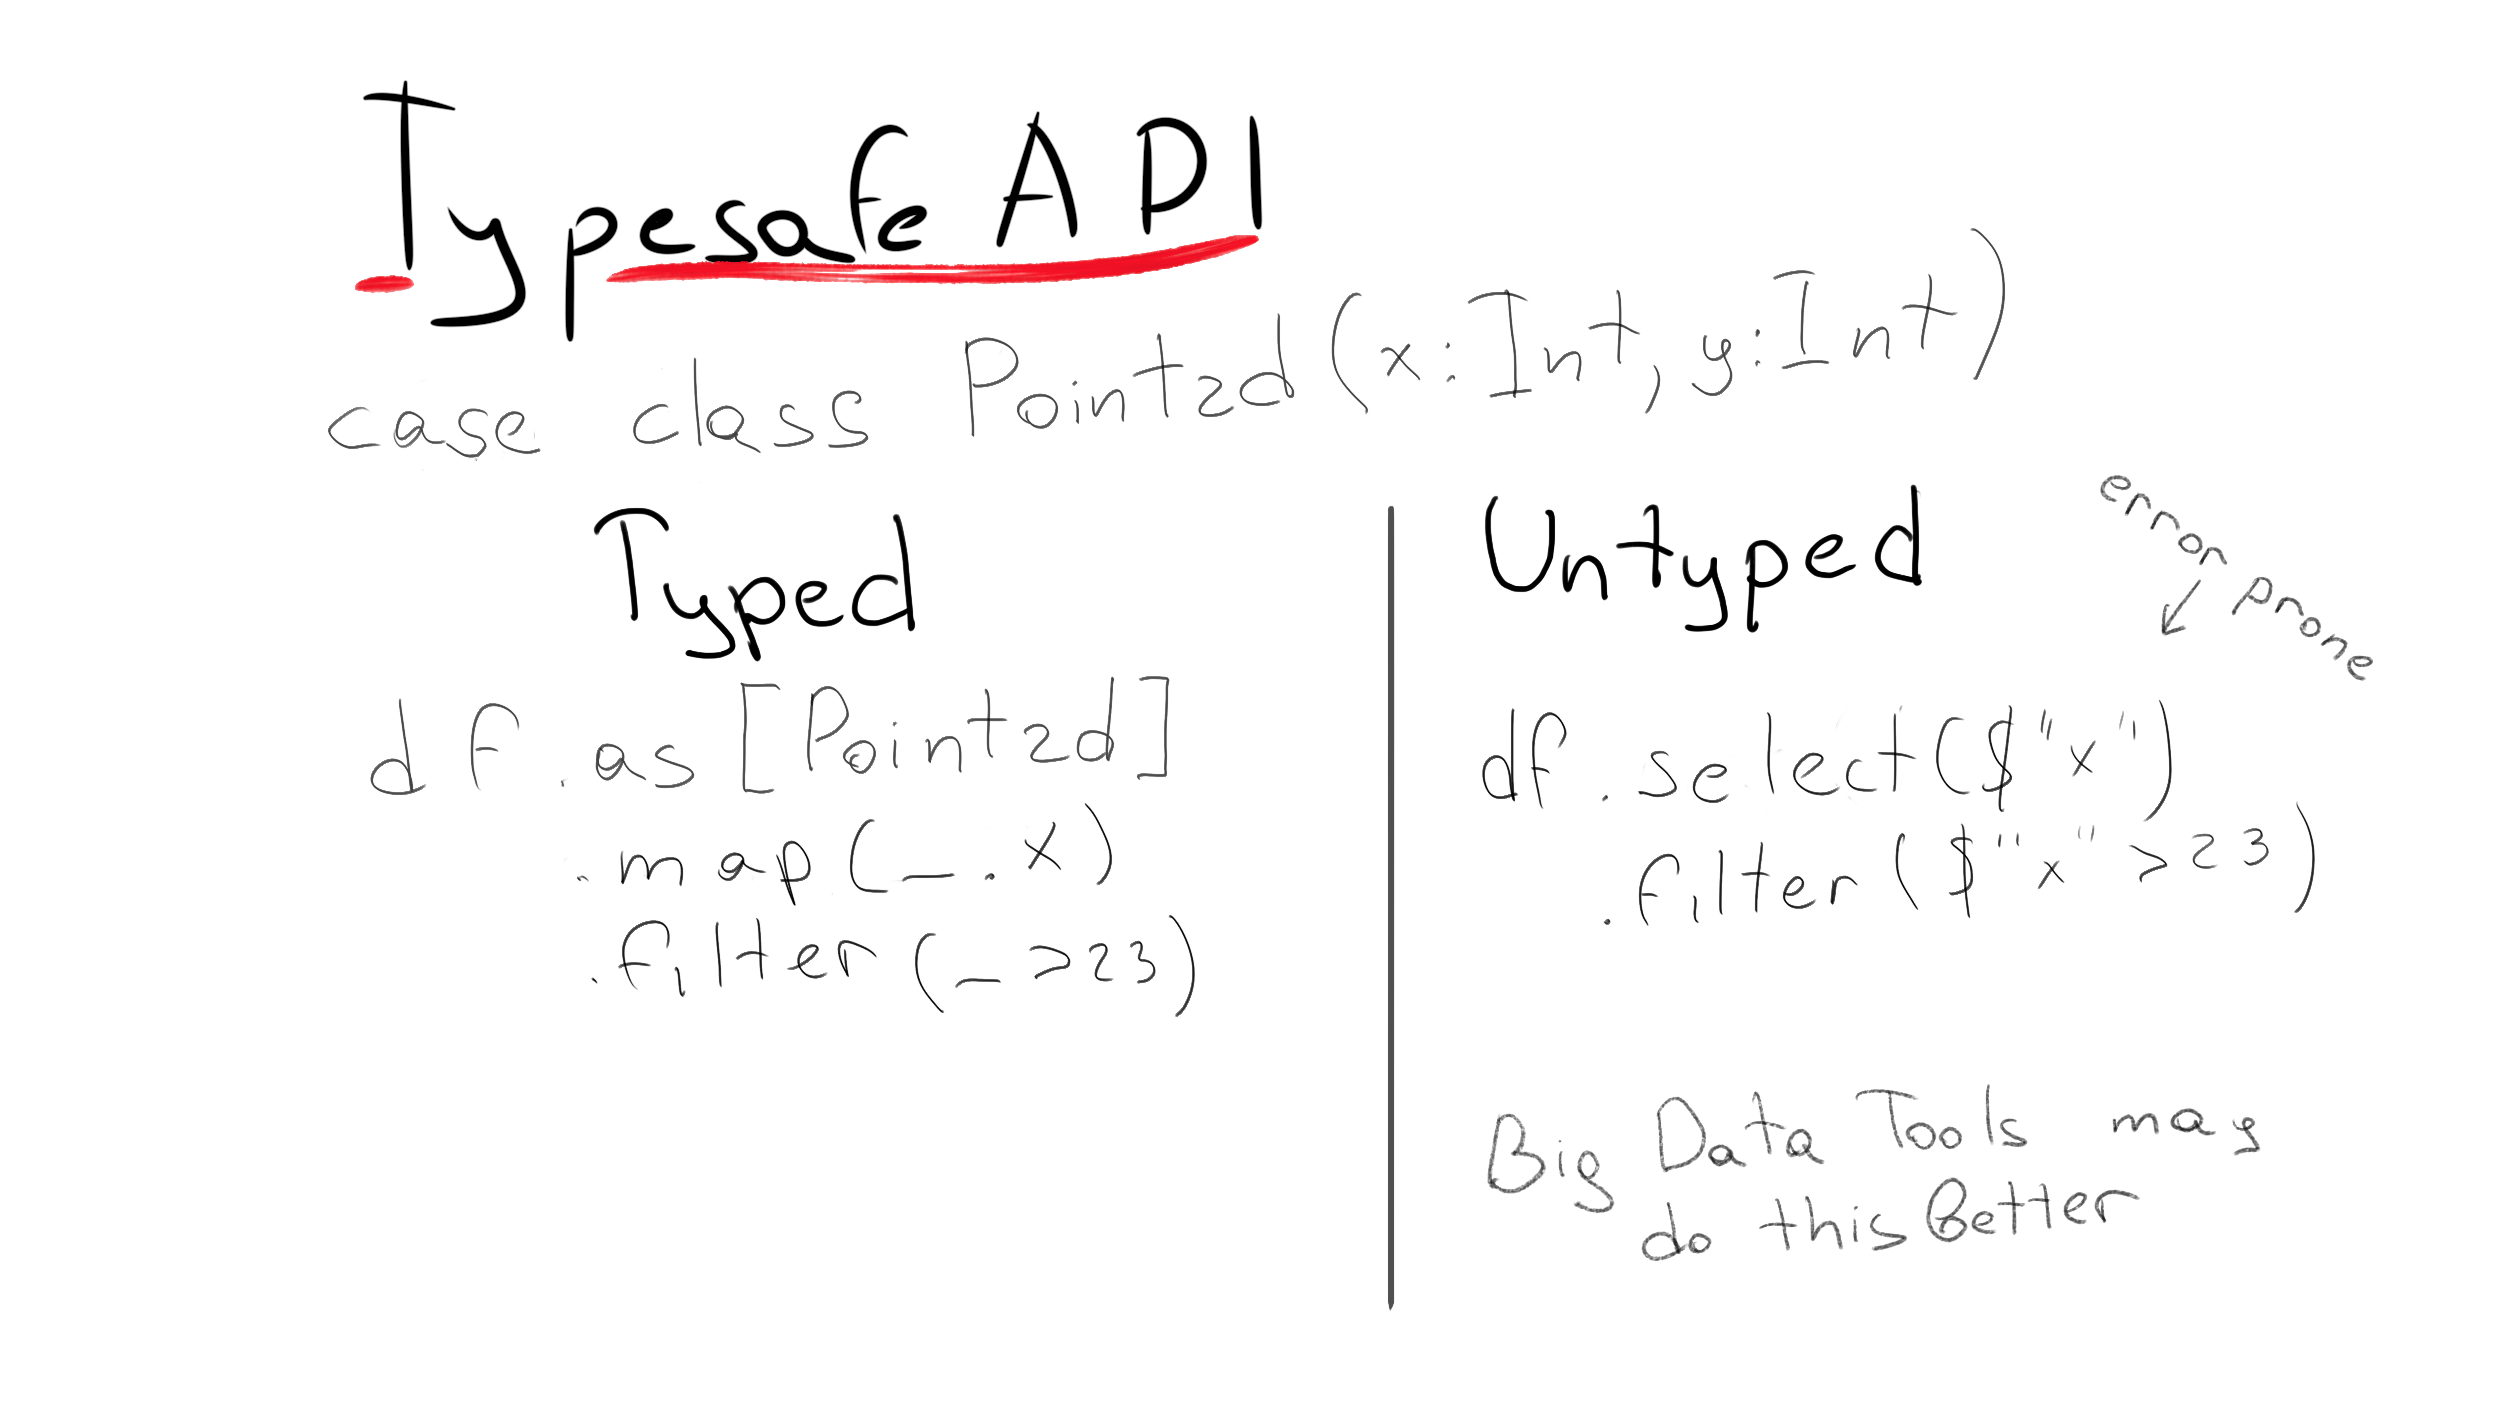 Typesafe API
case class Point2d(x:Int, y:Int)
Typed
df.as[Point2d]
.map(_.x)
.filter(_>23)
Untyped
error prone
df.select($"x")
.filter($"x">23)
Big Data Tools may
do this Better